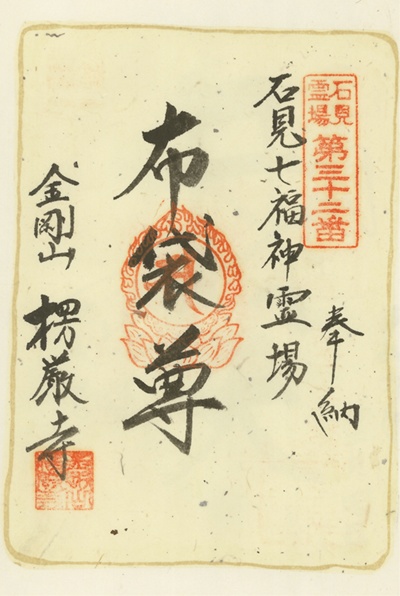 石見
霊場
第三十二番
奉納
石見七福神霊場
布袋尊
金剛山
楞厳寺